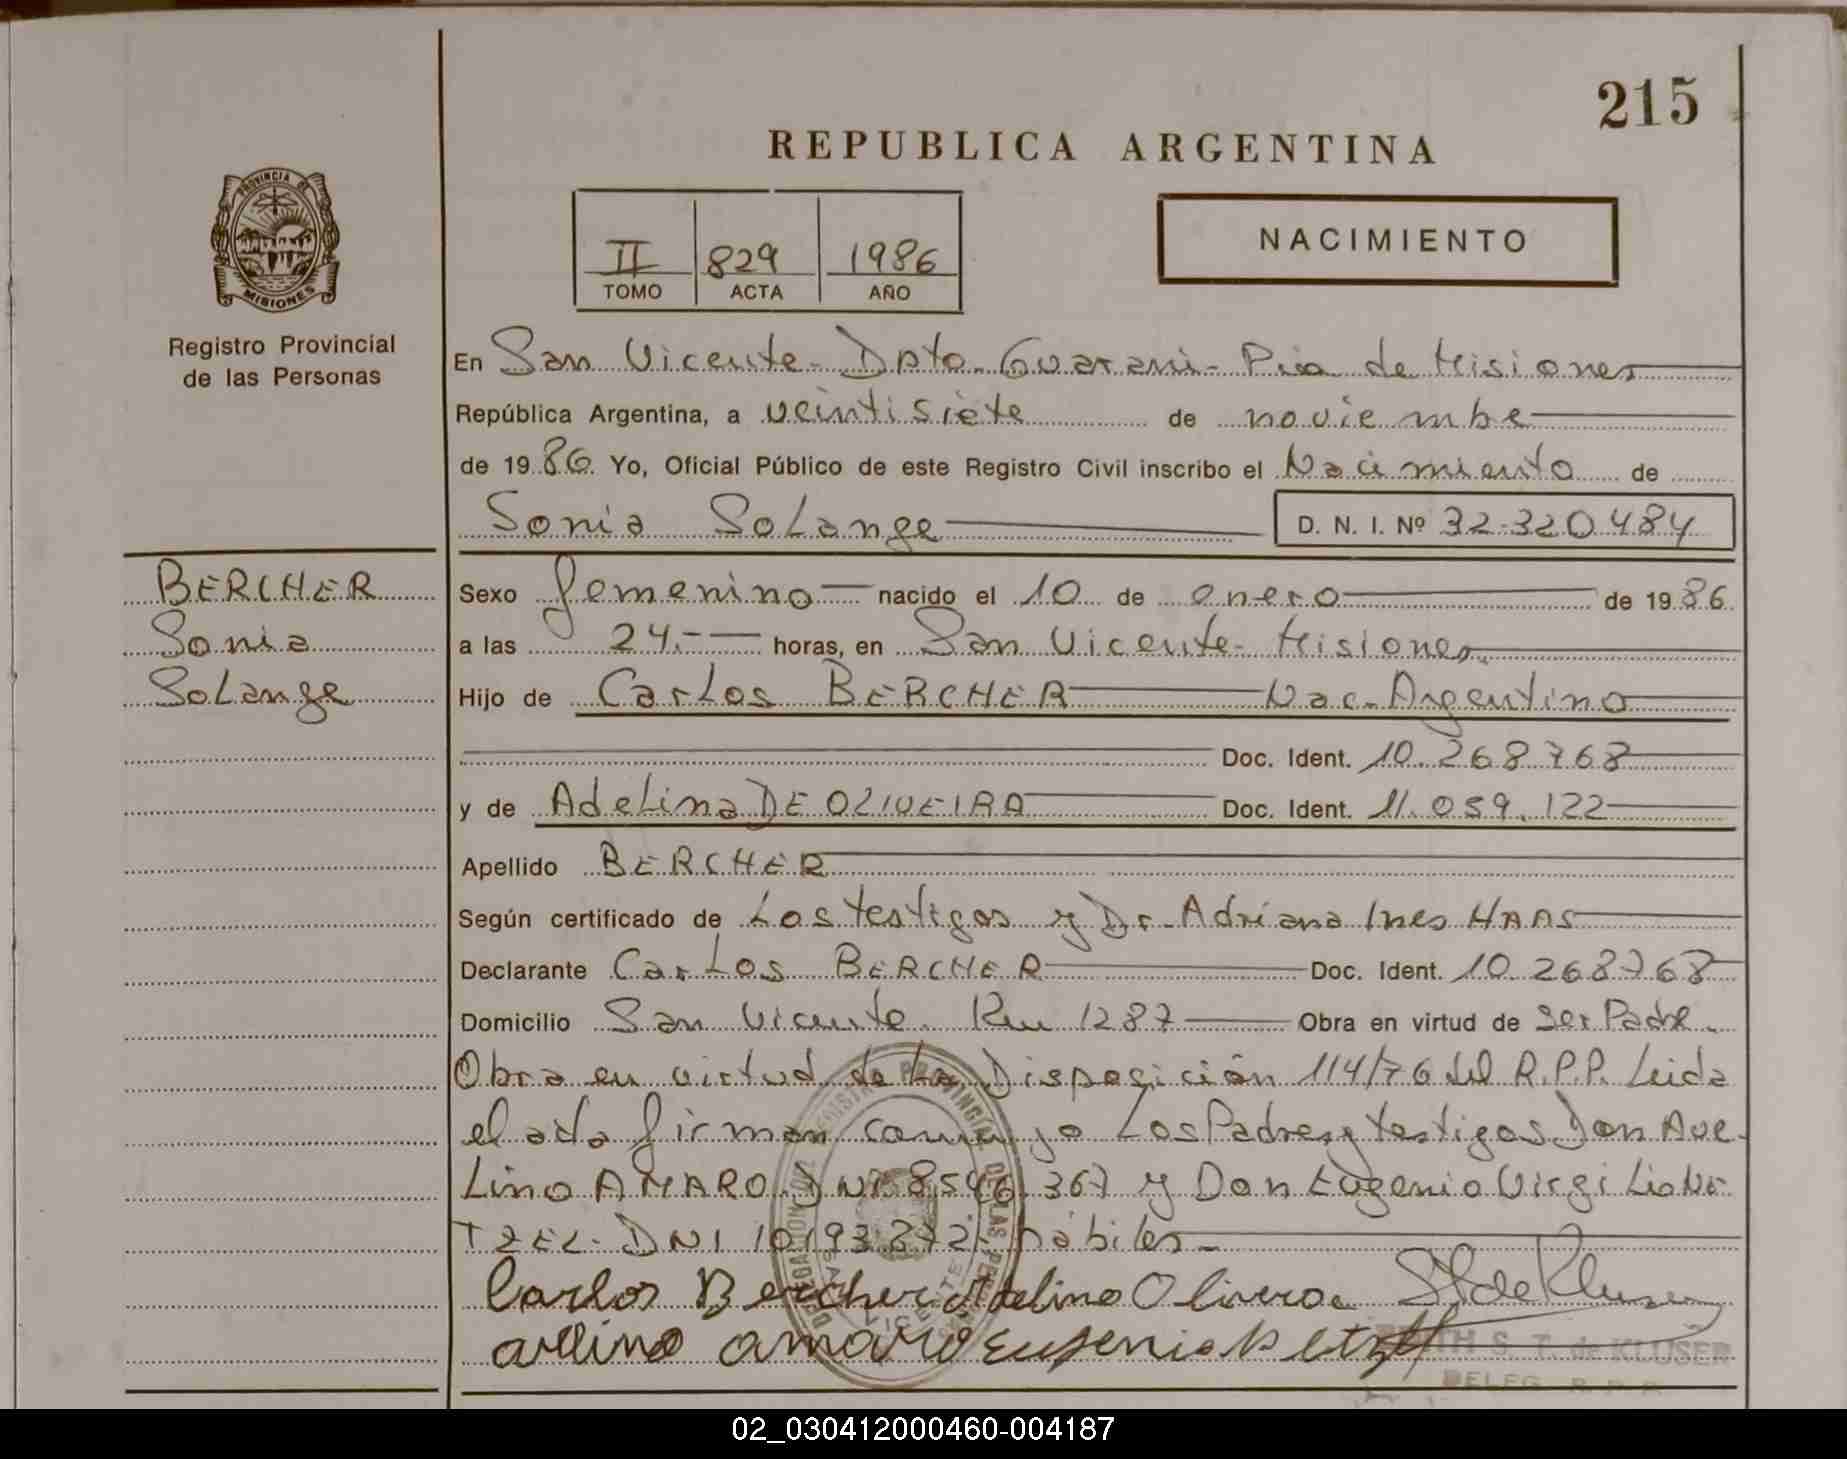 215
REPUBLICA ARGENTINA
PROVINCIA DE
MISIONES
Registro Provincial
de las Personas
II 829 1986
TOMO ACTA AÑO
NACIMIENTO
En San Vicente - Dpto. Guarani - Pcia de Misiones
República Argentina, a veintisiete de noviembe
de 1986. Yo, Oficial Público de este Registro Civil inscribo el Nacimiento de
Sonia Solange D. N. I. Nº 32.320.484
BERCHER
Sonia
Solange
Sexo femenino nacido el 10 de enero de 1986
a las 24.- horas, en San Vicente - Misiones
Hijo de Carlos BERCHER Nac. Argentino
Doc. Ident. 10.268768
y de Adelina DE OLIVEIRA Doc. Ident. 11.059.122
Apellido BERCHER
Según certificado de Los testigos y Dr. Adriana Ines HAAS
Declarante Carlos BERCHER Doc. Ident. 10.268768
Domicilio San Vicente. Km 1287 Obra en virtud de ser Padre.
Obra en virtud de la Disposición 114/76 del R.P.P. Leida
el acta firman conmigo Los Padres y testigos Don Ave-
Lino AMARO DNI 8.540.367 y Don Eugenio Virgilio NE-
TZEL- DNI habiles-
Carlos Bercher Adelina Olivera
avelino amaro Eugenio Netzel
S. T. de KLUSER
DELEG. R. P. P.
02_030412000460-004187